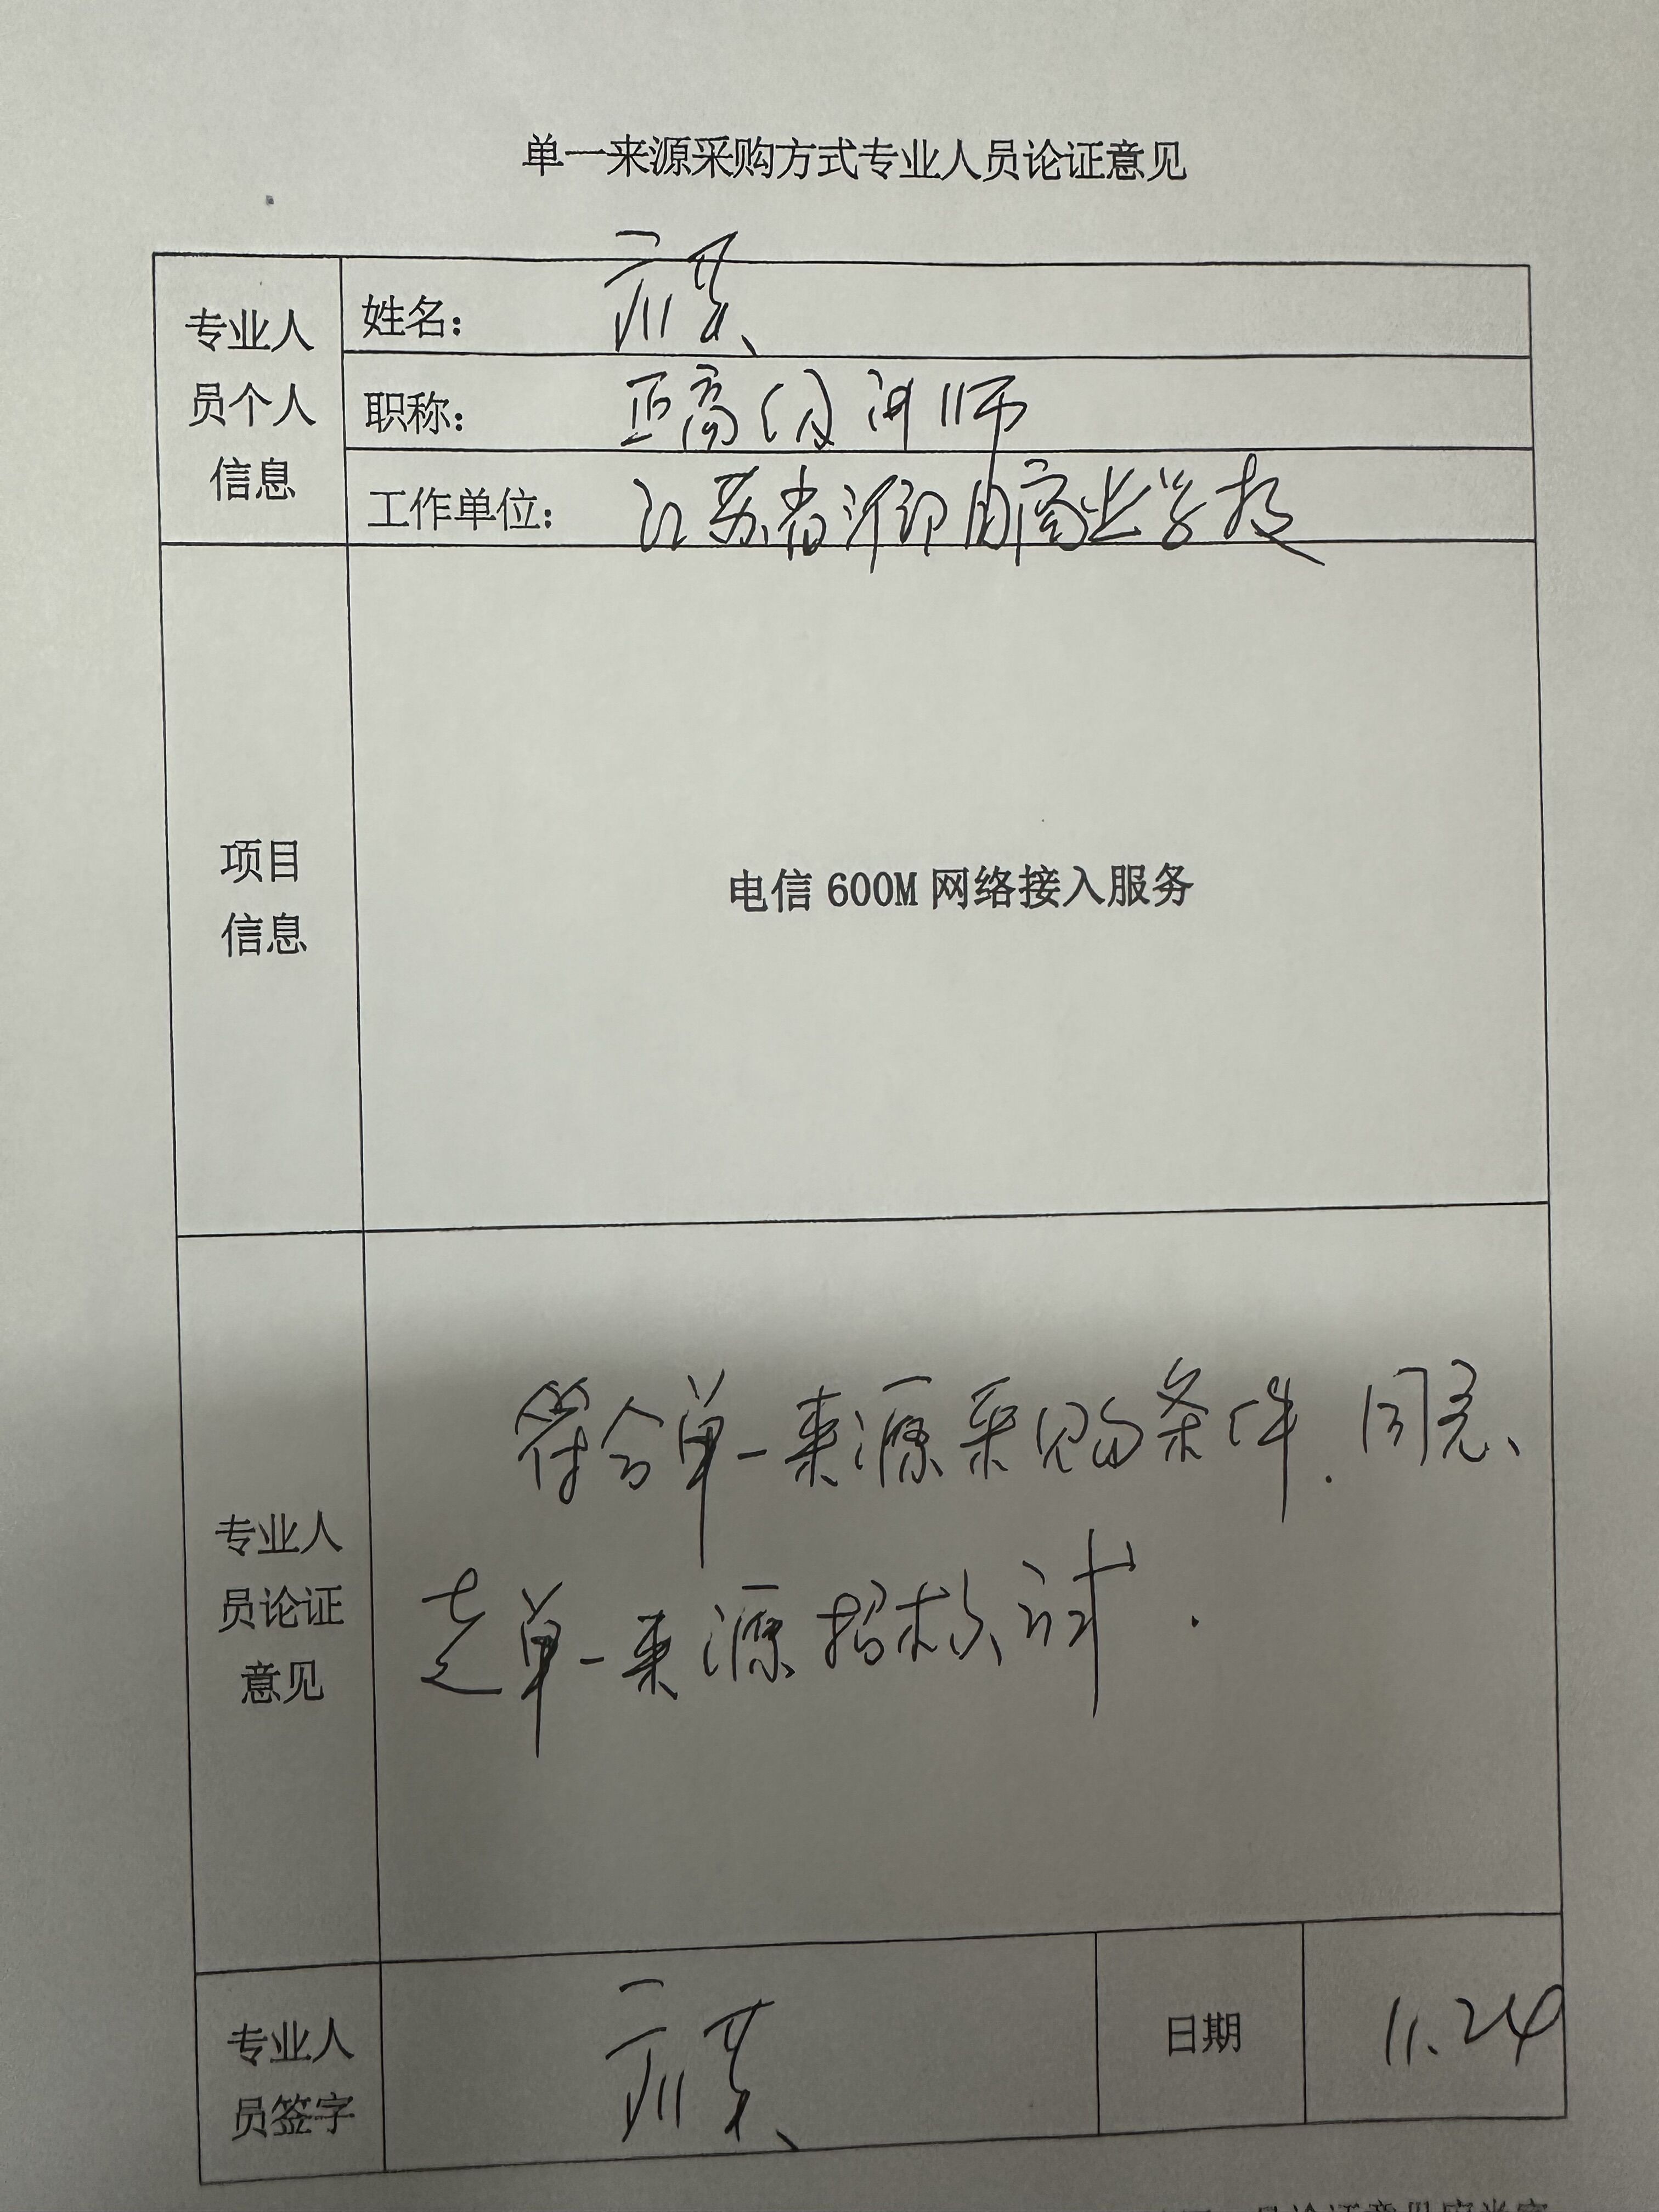 单一来源采购方式专业人员论证意见
专业人员个人信息
姓名：
职称： 正高级讲师
工作单位： 江苏省淮阴商业学校
项目信息
电信 600M 网络接入服务
专业人员论证意见
符合单一来源采购条件.同意
走单一来源招标.
专业人员签字
日期
11.24